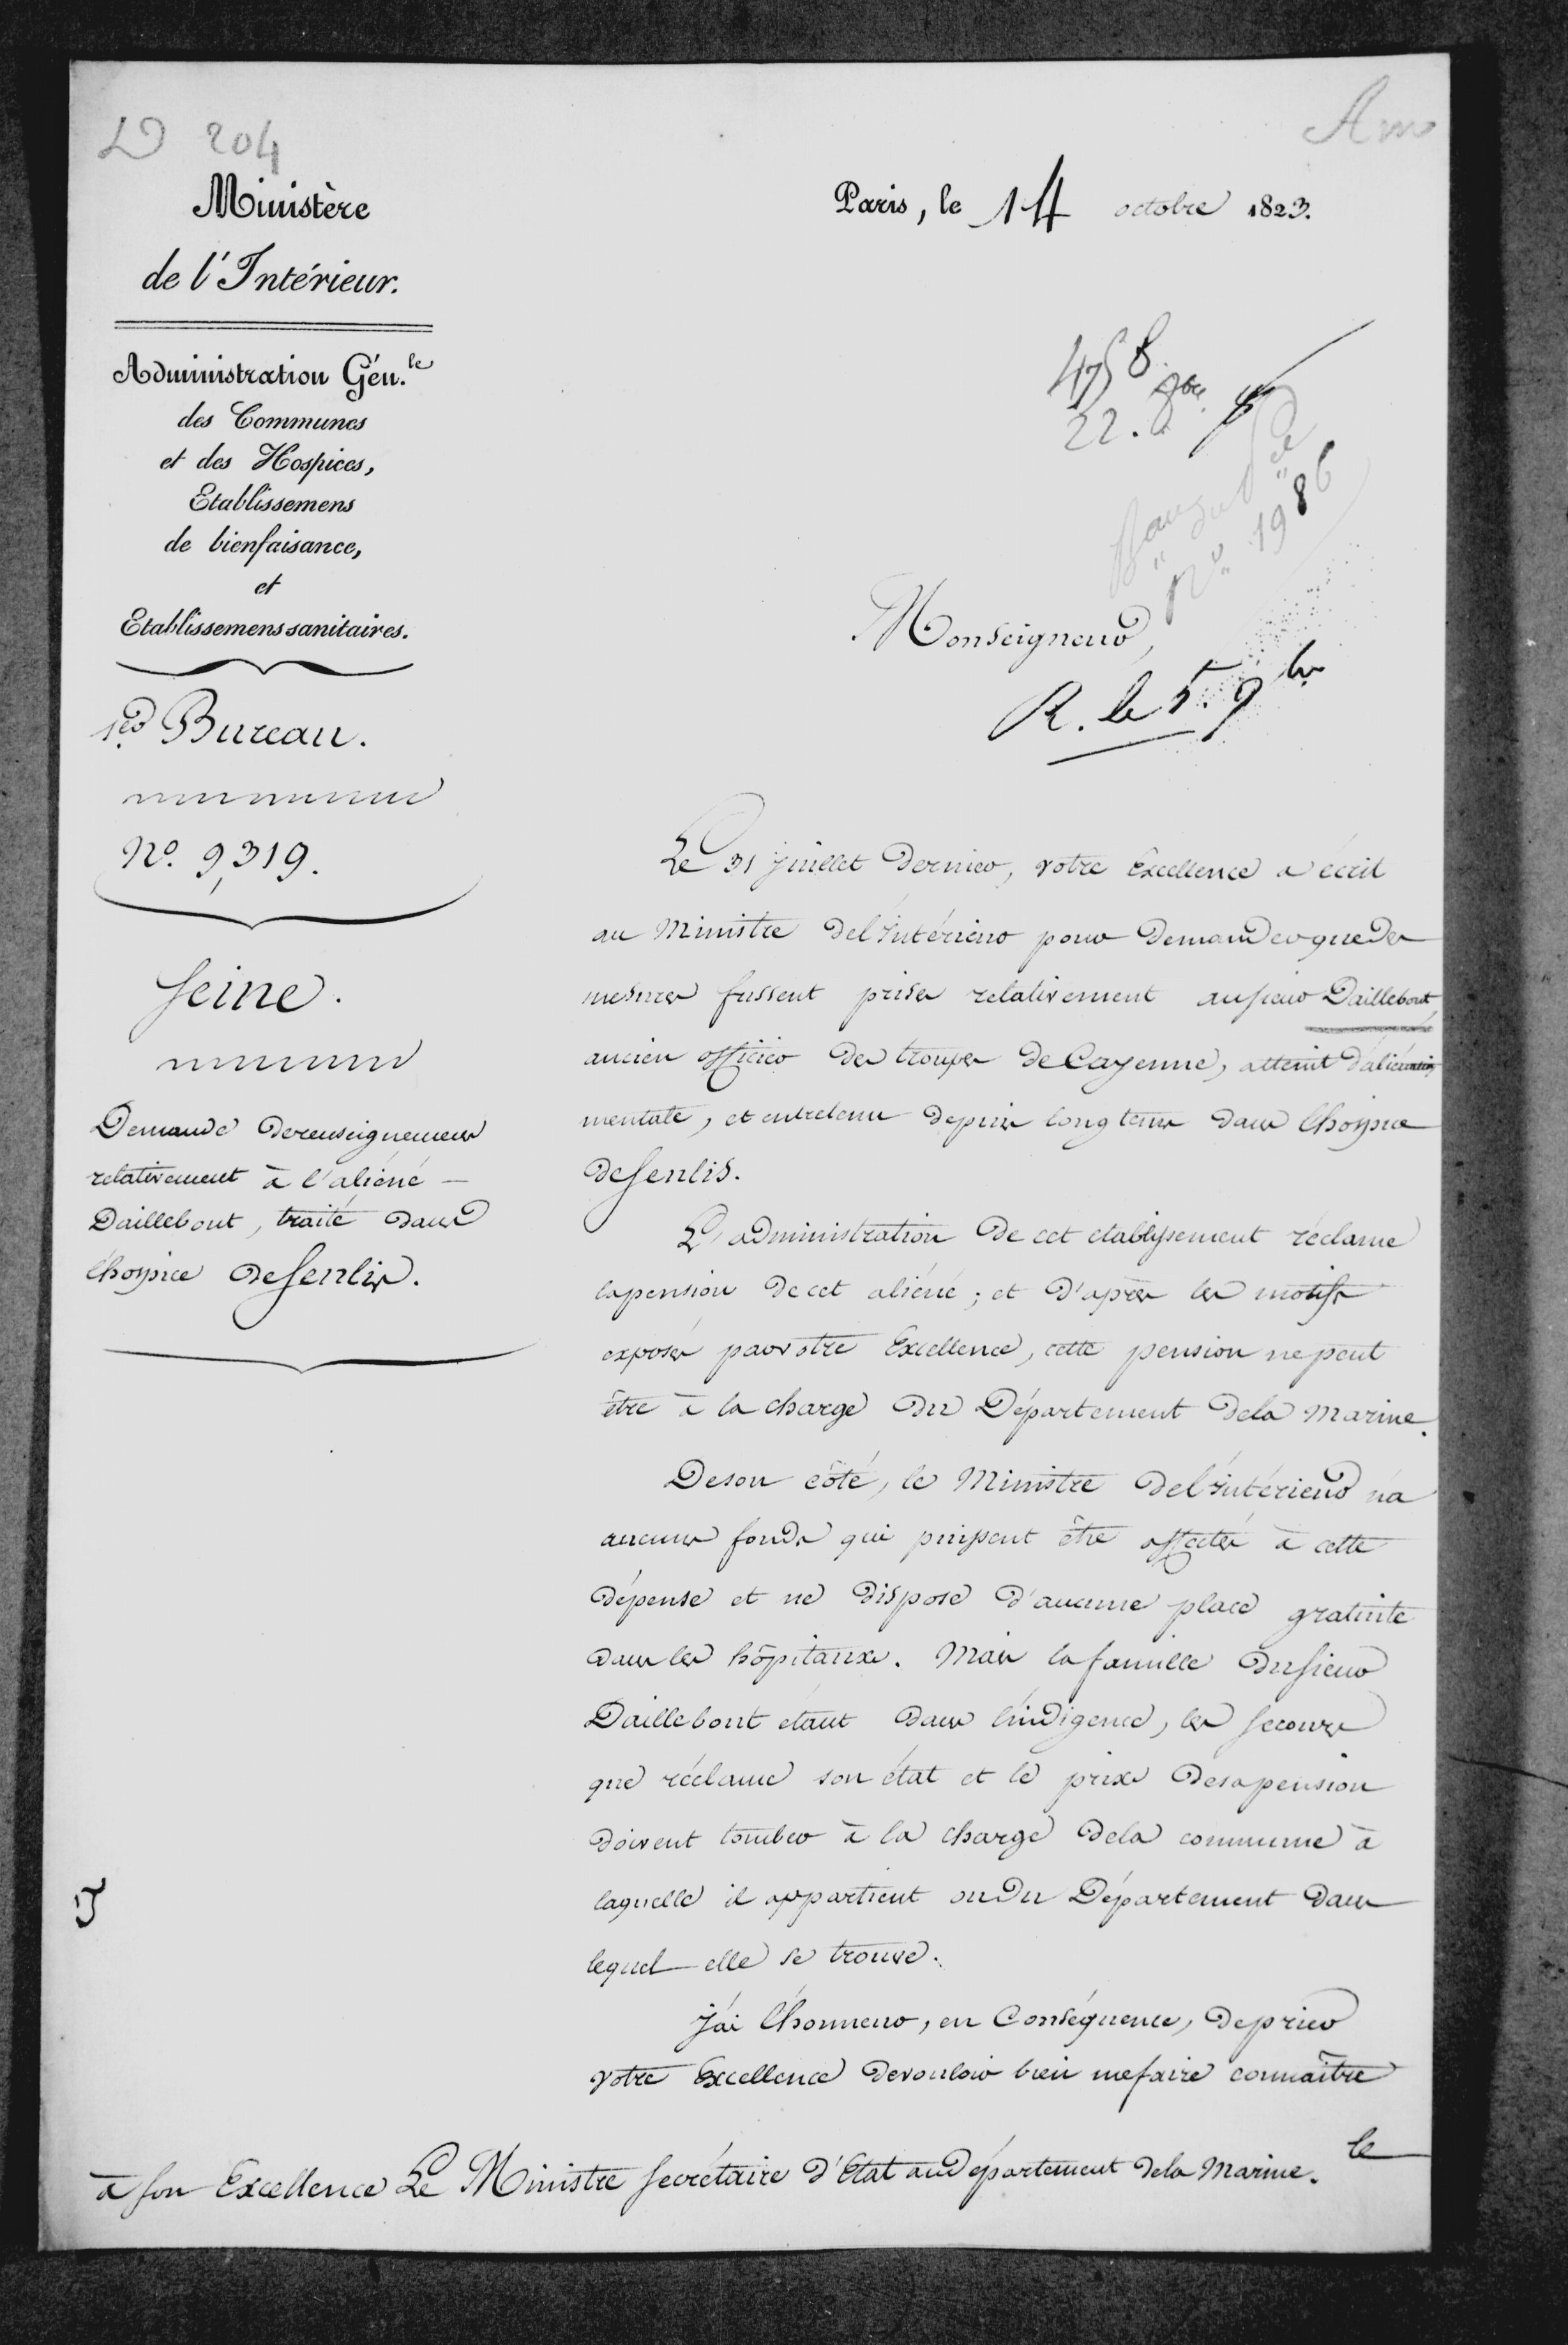 D 204
Ministère
de l'Intérieur.
Administration Gén.le
des Communes
et des Hospices,
Etablissemens
de bienfaisance,
et
Etablissemens sanitaires.
Bureau.
No. 9,319.
Seine.
Demande de renseignemens
relativement à l'aliéné
Daillebout, traité dans
l'hospice de Senlis.
Paris, le 14 octobre 1823.
22. 8bre
No. 1986
Monseigneur,
R. le 5. 9bre
Le 31 Juillet dernier, votre Excellence a écrit
au Ministre de l'Intérieur pour demander que des
mesures fussent prises relativement au sieur Daillebout,
ancien officier des troupes de Cayenne, atteint d'aliénation
mentale, et entretenu depuis longtems dans l'hospice
de Senlis.
L'administration de cet etablissement réclame
la pension de cet aliéné ; et d'après les motifs
exposés par votre Excellence, cette pension ne peut
être à la charge du Département de la Marine.
De son côté, le Ministre de l'Intérieur n'a
aucuns fonds qui puissent être affectés à cette
dépense et ne dispose d'aucune place gratuite
dans les hôpitaux. Mais la famille du sieur
Daillebout étant dans l'indigence, les secours
que réclame son état et le prix de sa pension
doivent tomber à la charge de la commune à
laquelle il appartient ou du Département dans
lequel elle se trouve.
J'ai l'honneur, en Conséquence, de prier
votre Excellence de vouloir bien me faire connaître
le
à Son Excellence Le Ministre Secrétaire d'Etat au Département de la Marine.